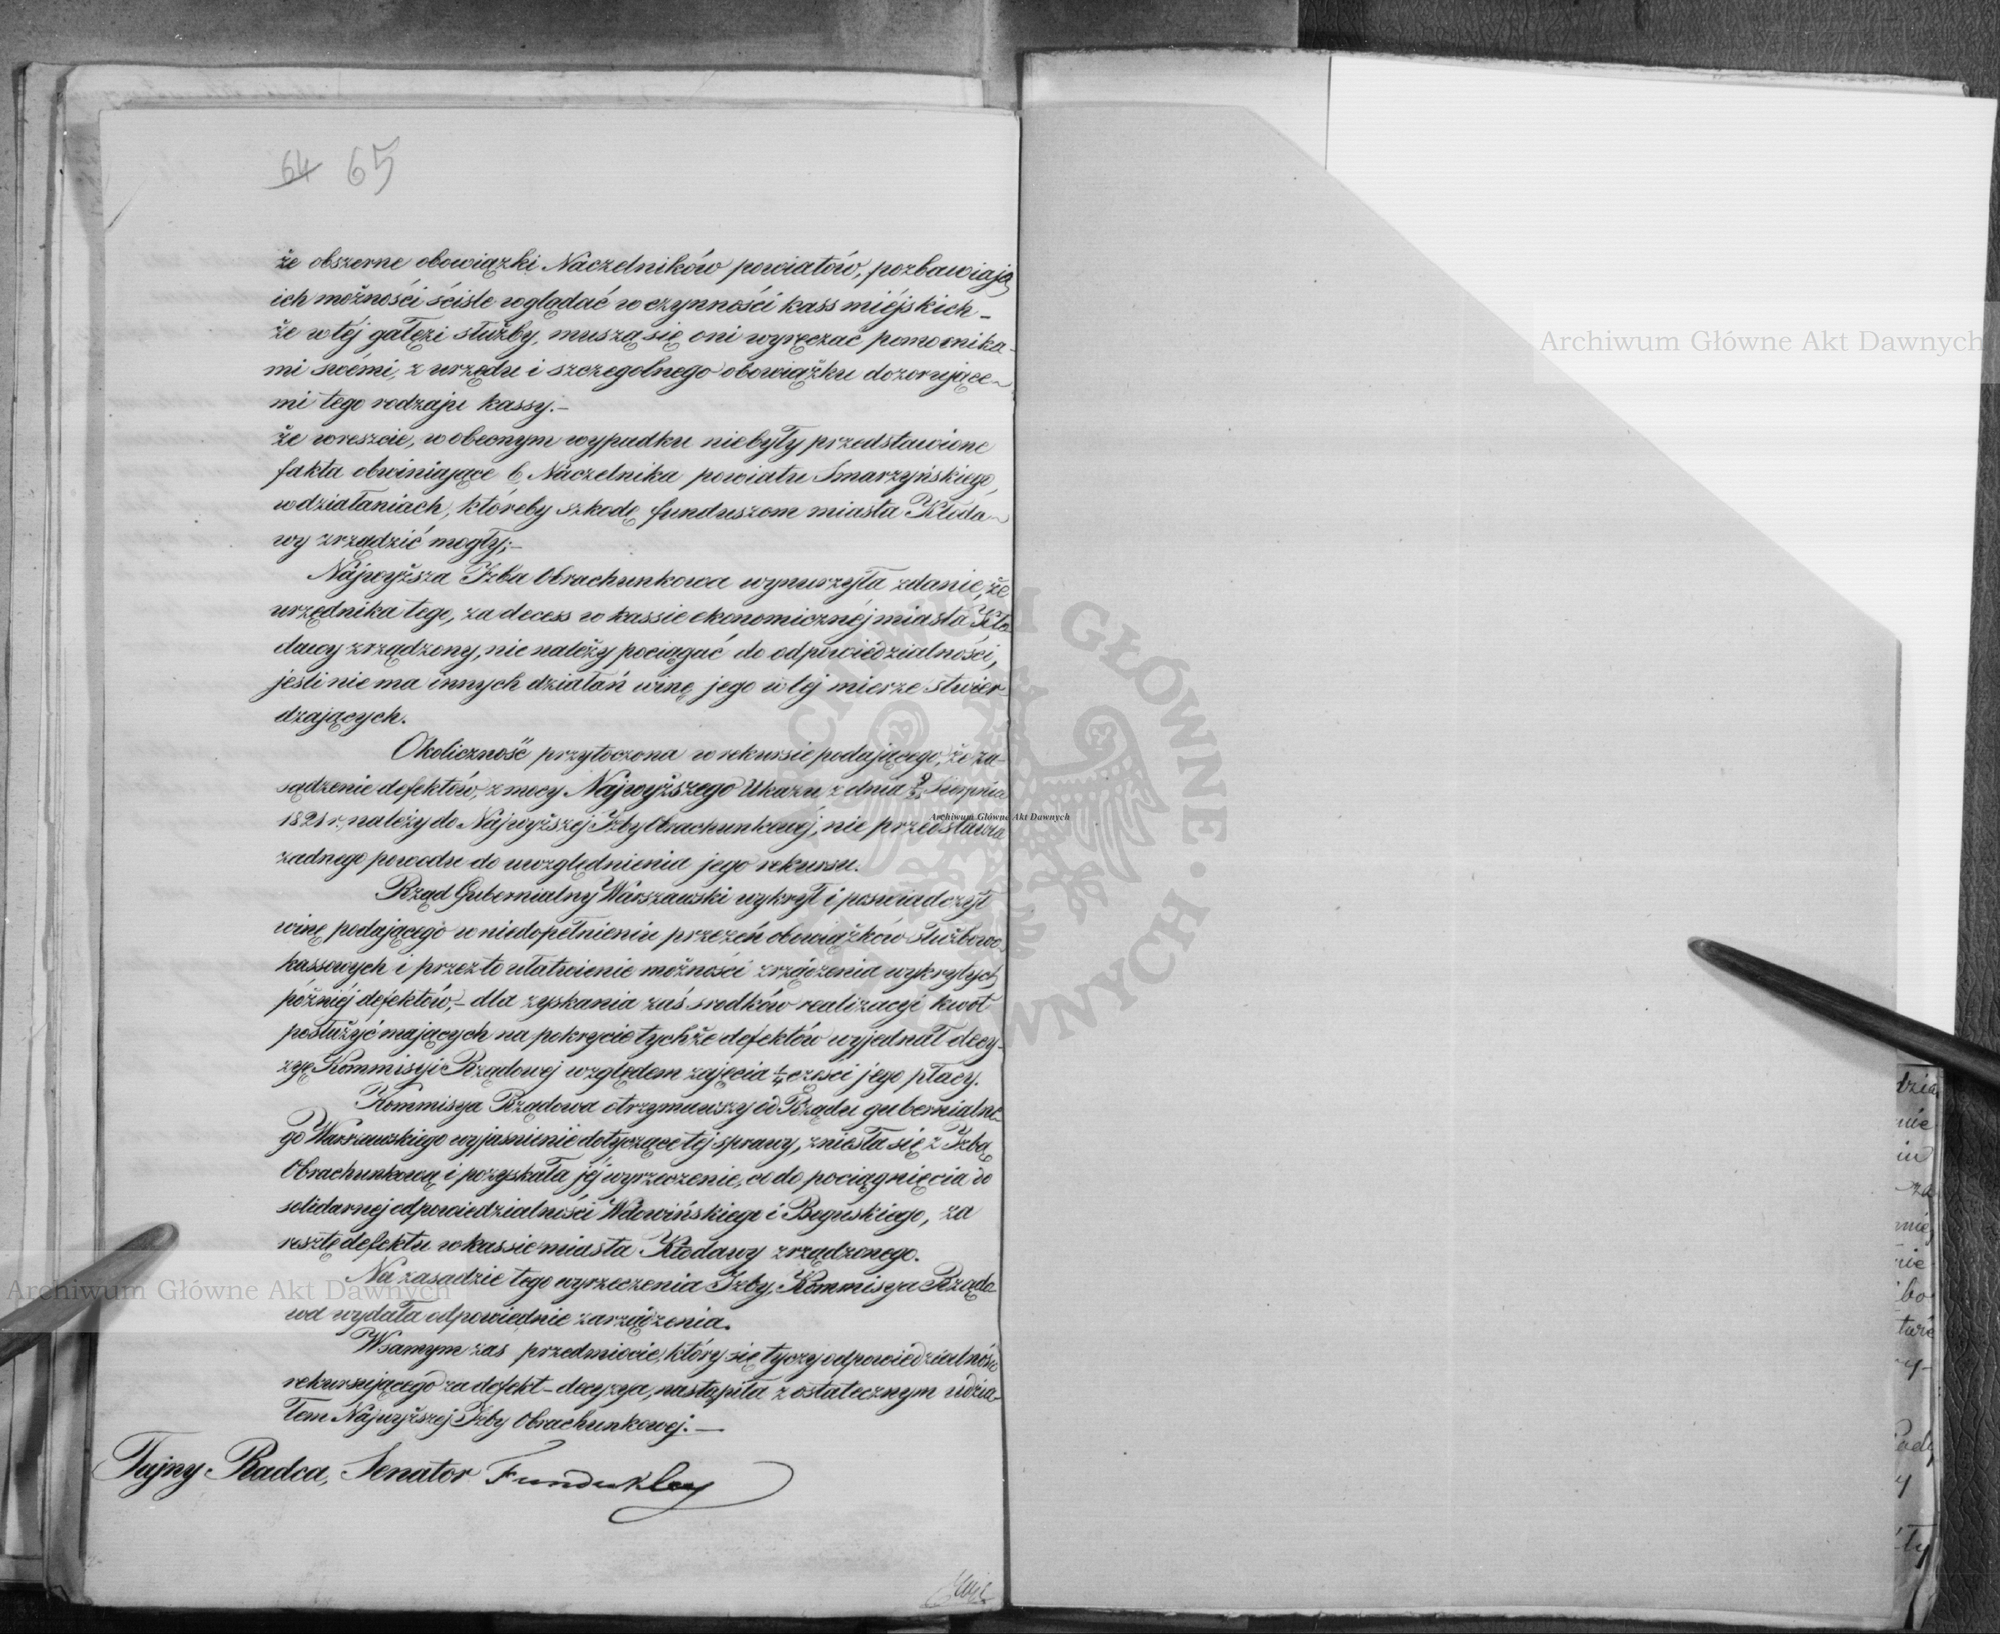 64 65
że obszerne obowiązki Naczelników powiatów, pozbawiają
ich możności ściśle wglądać w czynności kass miéjskich –
że w téj gałęzi służby, muszą się oni wyręczać pomocnika-
mi swémi, z urzędu i szczegolnego obowiązku dozorujące-
mi tego rodzaju kassy. –
że wreszcie, w obecnym wypadku niebyły przedstawione
fakta obwiniające b. Naczelnika powiatu Smarzyńskiego,
w działaniach, któreby szkodę funduszom miasta Kłoda-
wy zrządzić mogły; –
Najwyższa Izba Obrachunkowa wynurzyła zdanie, że
urzędnika tego, za decess w kassie ekonomicznéj miasta Kło
dawy zrządzony, nie należy pociągać do odpowiedzialności,
jeśli nie ma innych działań winę jego w tej mierze stwier-
dzających.
Okoliczność przytoczona w rekursie podającego, że za-
sądzenie defektów, z mocy Najwyższego Ukazu z dnia 9/21 Sierpnia
1821 r. należy do Najwyższéj Izby Obrachunkowéj, nie przedstawia
żadnego powodu do uwzględnienia jego rekursu.
Rząd Gubernialny Warszawski wykrył i poswiadczył
winę podającego w niedopełnieniu przezeń obowiązków służbowo
kassowych i przez to ułatwienie możności zrządzenia wykrytych
póżniéj defektów, – dla zyskania zaś srodków realizacyi kwot
posłużyć mających na pokrycie tychże defektów wyjednał decy-
zyę Kommisyi Rządowej względem zajęcia 1/4 części jego płacy.
Kommisya Rządowa otrzymawszy od Rządu gubernialne-
go Warszawskiego wyjasnienie dotyczące tej sprawy, zniosła się z Izbą
Obrachunkową i pozyskała jéj wyrzeczenie, co do pociągnięcia do
solidarnej odpowiedzialności Wdowińskiego i Boguskiego, za
resztę defektu w kassie miasta Kłodawy zrządzonego.
Na zasadzie tego wyrzeczenia Izby, Kommisya Rządo
wa wydała odpowiednie zarządzenia.
W samym zas przedmiocie, który się tyczy odpowiedzialności
rekursującego za defekt – decyzya, nastąpiła z ostatecznym udzia-
łem Najwyższej Izby Obrachunkowej. –
Tajny Radca, Senator Fundukley
Archiwum Główne Akt Dawnych
Archiwum Główne Akt Dawnych
Archiwum Główne Akt Dawnych
ARCHIWUM GŁÓWNE AKT DAWNYCH